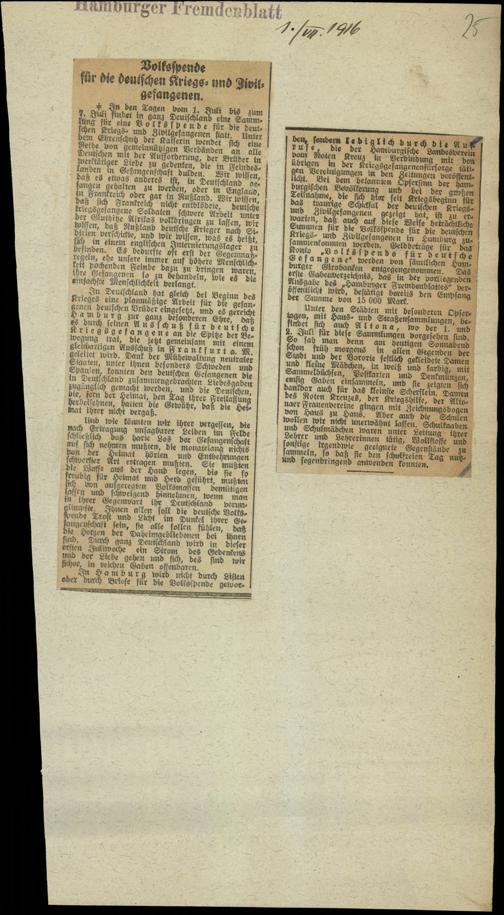 Hamburger Fremdenblatt
1./VII. 1916
25
Volksspende
für die deutschen Kriegs- und Zivil-
gefangenen.
* In den Tagen vom 1. Juli bis zum
7. Juli findet in ganz Deutschland eine Samm-
lung für eine Volksspende für die deut-
schen Kriegs- und Zivilgefangenen statt. Unter
dem Ehrenschutz der Kaiserin wendet sich eine
Reihe von gemeinnützigen Verbänden an alle
Deutschen mit der Aufforderung, der Brüder in
werktätiger Liebe zu gedenken, die in Feindes-
landen in Gefangenschaft dulden. Wir wissen,
daß es etwas anderes ist, in Deutschland ge-
fangen gehalten zu werden, oder in England,
in Frankreich oder gar in Rußland. Wir wissen,
daß sich Frankreich nicht entblödete, deutsche
kriegsgefangene Soldaten schwere Arbeit unter
der Glühhitze Afrikas vollbringen zu lassen, wir
wissen, daß Rußland deutsche Krieger nach Si-
birien verschickte, und wir wissen, was es heißt,
sich in einem englischen Internierungslager zu
befinden. Es bedurfte oft erst der Gegenmaß-
regeln, ehe unsere immer auf höhere Menschlich-
keit pochenden Feinde dazu zu bringen waren,
ihre Gefangenen so zu behandeln, wie es die
einfachste Menschlichkeit verlangt.
In Deutschland hat gleich bei Beginn des
Krieges eine planmäßige Arbeit für die gefan-
genen deutschen Brüder eingesetzt, und es gereicht
Hamburg zur ganz besonderen Ehre, daß
es durch seinen Ausschuß für deutsche
Kriegsgefangene an die Spitze der Be-
wegung trat, die jetzt gemeinsam mit einem
gleichartigen Ausschuß in Frankfurt a. M.
geleitet wird. Dank der Mühewaltung neutraler
Staaten, unter ihnen besonders Schweden und
Spanien, konnten den deutschen Gefangenen die
in Deutschland zusammengebrachten Liebesgaben
zugänglich gemacht werden, und die Deutschen,
die, fern der Heimat, den Tag ihrer Freilassung
herbeisehnen, hatten die Gewähr, daß die Hei-
mat ihrer nicht vergaß.
Und wie könnten wir ihrer vergessen, die
nach Ertragung unsagbarer Leiden im Felde
schließlich das harte Los der Gefangenschaft
auf sich nehmen mußten, die monatelang nichts
von der Heimat hörten und Entbehrungen
schwerster Art ertragen mußten. Sie mußten
die Waffe aus der Hand legen, die sie so
freudig für Heimat und Herd geführt, mußten
sich von aufgeregten Volksmassen demütigen
lassen und schweigend hinnehmen, wenn man
in ihrer Gegenwart ihr Deutschland verun-
glimpfte. Ihnen allen soll die deutsche Volks-
spende Trost und Licht im Dunkel ihrer Ge-
fangenschaft sein, sie alle sollen fühlen, daß
die Herzen der Daheimgebliebenen bei ihnen
sind. Durch ganz Deutschland wird in dieser
ersten Juliwoche ein Strom des Gedenkens
und der Liebe gehen und sich, des sind wir
sicher, in reichen Gaben offenbaren.
In Hamburg wird nicht durch Listen
oder durch Briefe für die Volksspende gewor-
ben, sondern lediglich durch die Auf-
rufe, die der Hamburgische Landesverein
vom Roten Kreuz in Verbindung mit den
übrigen in der Kriegsgefangenenfürsorge täti-
gen Vereinigungen in den Zeitungen veröffent-
licht. Bei dem bekannten Opfersinn der ham-
burgischen Bevölkerung und bei der großen
Teilnahme, die sich hier seit Kriegsbeginn für
das traurige Schicksal der deutschen Kriegs-
und Zivilgefangenen gezeigt hat, ist zu er-
warten, daß auch auf diese Weise beträchtliche
Summen für die Volksspende für die deutschen
Kriegs- und Zivilgefangenen in Hamburg zu-
sammenkommen werden. Geldbeträge für das
Konto „Volksspende für deutsche
Gefangene“ werden von sämtlichen Ham-
burger Großbanken entgegengenommen. Das
erste Gabenverzeichnis, das in der vorliegenden
Ausgabe des „Hamburger Fremdenblattes“ ver-
öffentlicht wird, bestätigt bereits den Empfang
der Summe von 15 000 Mark.
Unter den Städten mit besonderen Opfer-
tagen, mit Haus- und Straßensammlungen, be-
findet sich auch Altona, wo der 1. und
2. Juli für diese Sammlungen vorgesehen sind.
So sah man denn am heutigen Sonnabend
schon früh morgens in allen Gegenden der
Stadt und der Vororte festlich gekleidete Damen
und kleine Mädchen, in weiß und farbig, mit
Sammelbüchsen, Postkarten und Denkmünzen,
emsig Gaben einsammeln, und sie zeigten sich
dankbar auch für das kleinste Scherflein. Damen
des Roten Kreuzes, der Kriegshilfe, der Alto-
naer Frauenvereine gingen mit Zeichnungsbogen
von Haus zu Haus. Aber auch die Schulen
wollen wir nicht unerwähnt lassen. Schulknaben
und Schulmädchen waren unter Leitung ihrer
Lehrer und Lehrerinnen tätig, Wollstoffe und
sonstige irgendwie geeignete Gegenstände zu
sammeln, so daß sie den schulfreien Tag nutz-
und segenbringend anwenden konnten.